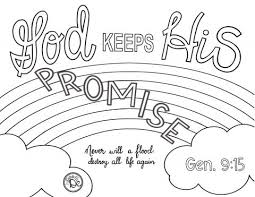 God KEEPS His
PROMISE
Never will a flood
destroy all life again
Gen. 9:15